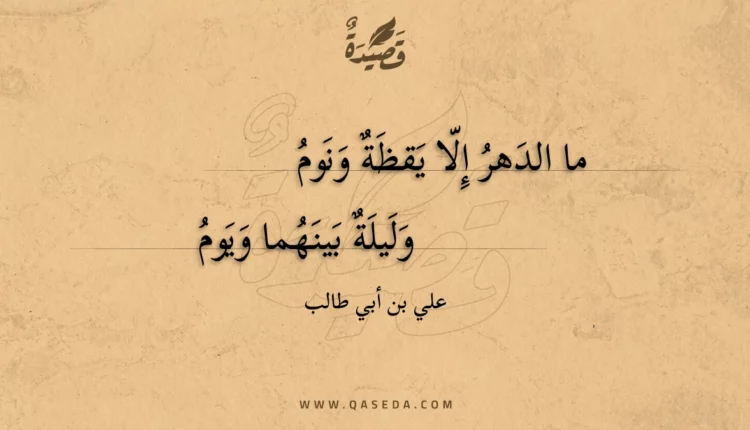 قَصِيْدَةٌ
ما الدَهرُ إِلّا يَقظَةٌ وَنَومُ
وَلَيلَةٌ بَينَهُما وَيَومُ
علي بن أبي طالب
WWW.QASEDA.COM